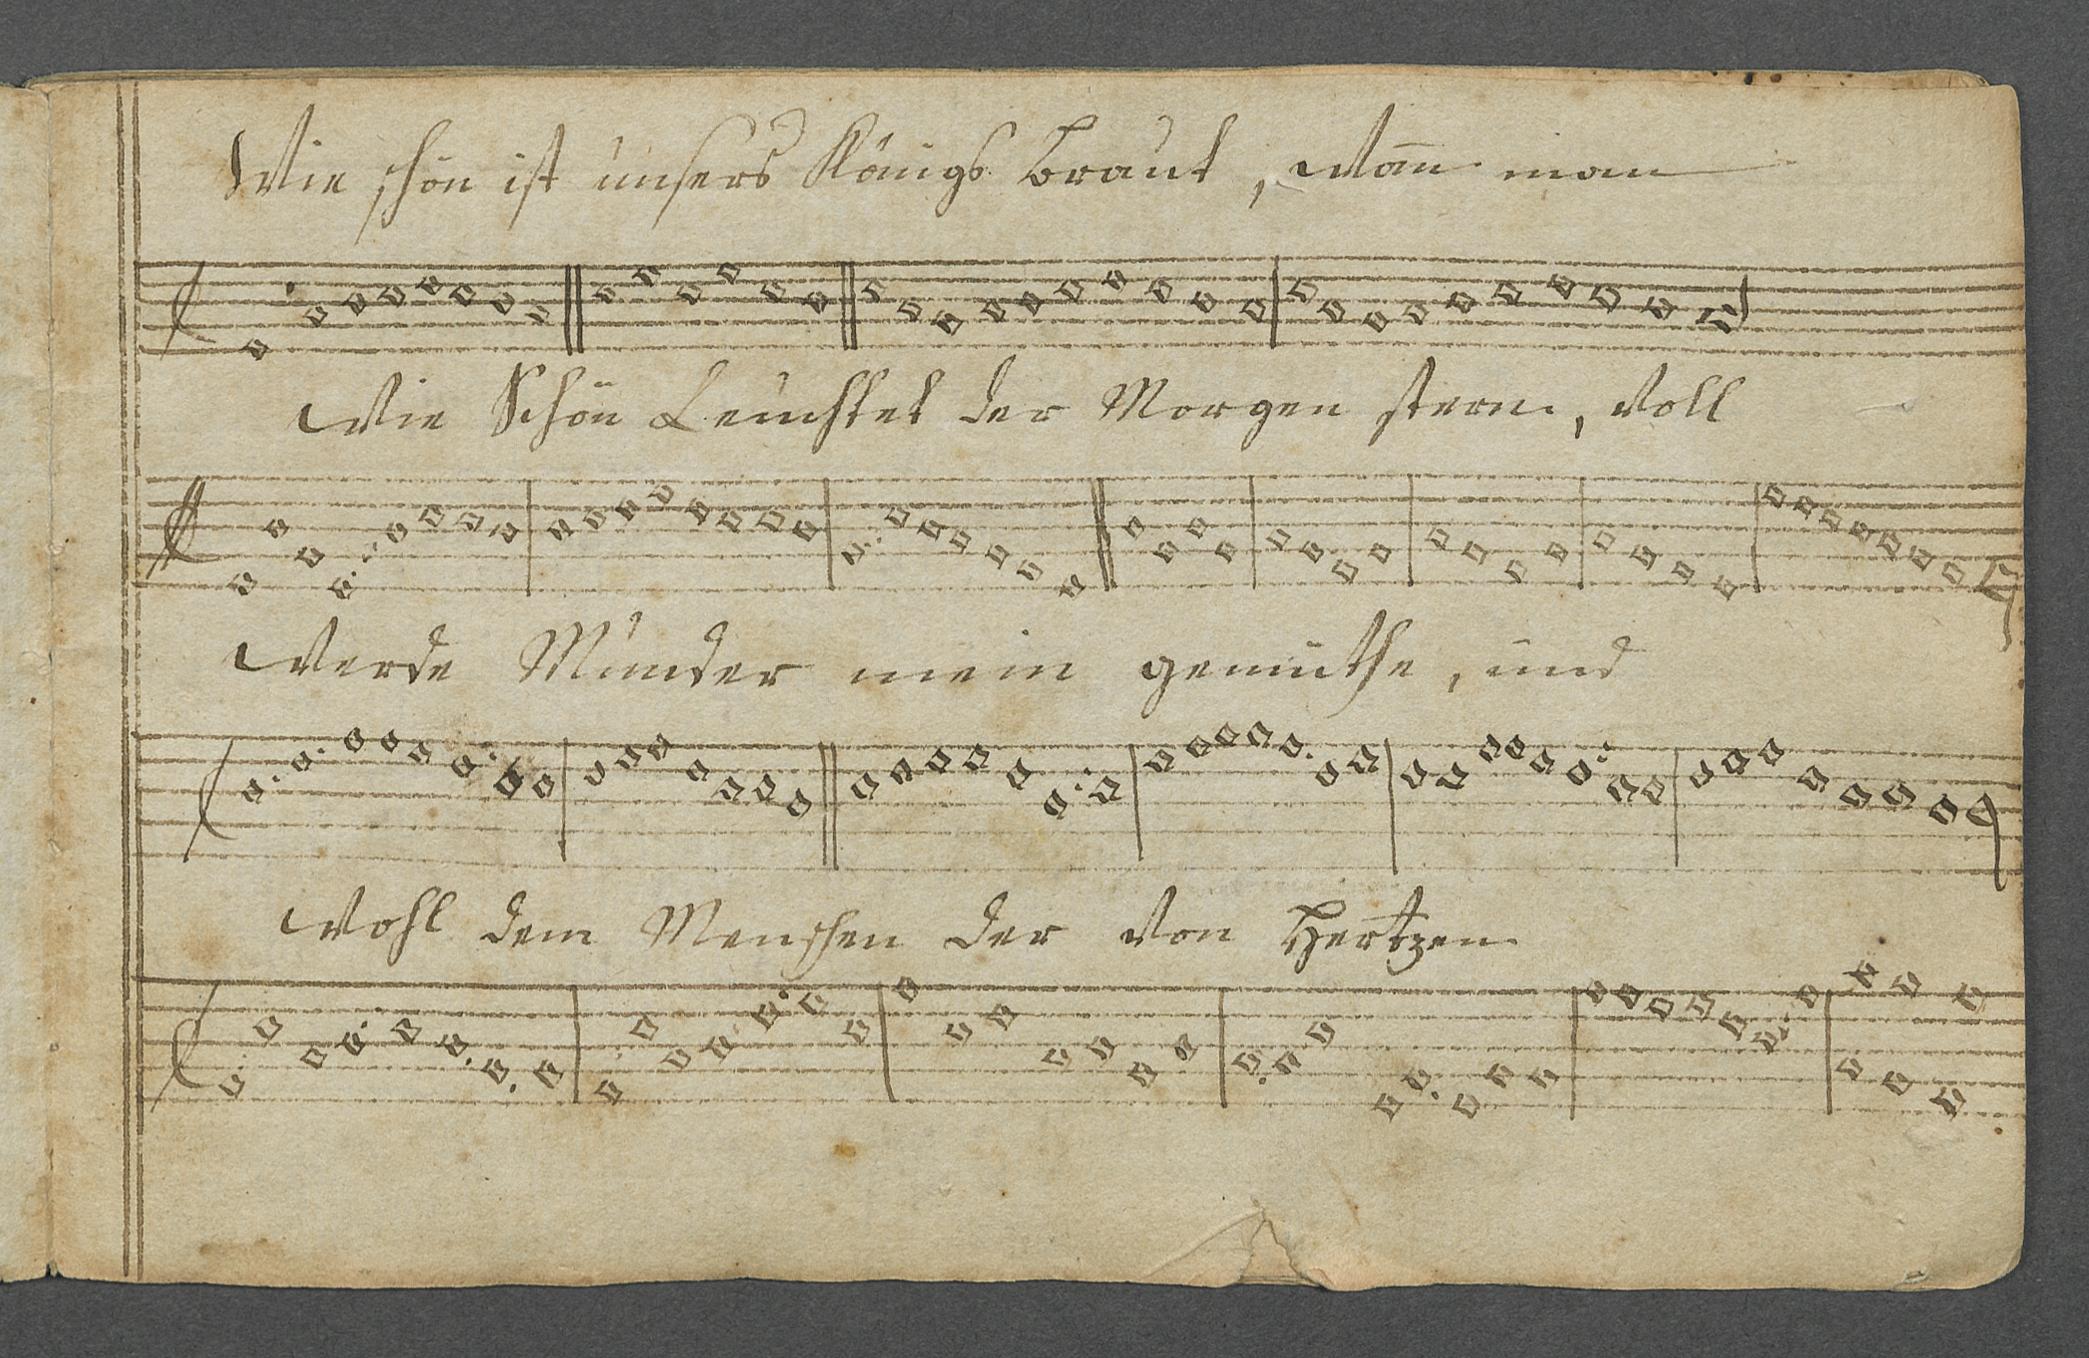 Wie schön ist unsers Königs braut, Wañ man
Wie Schön Leuchtet der Morgen stern, Voll
Werde Munder mein gemüthe, und
Wohl dem Menschen der Von Hertzen